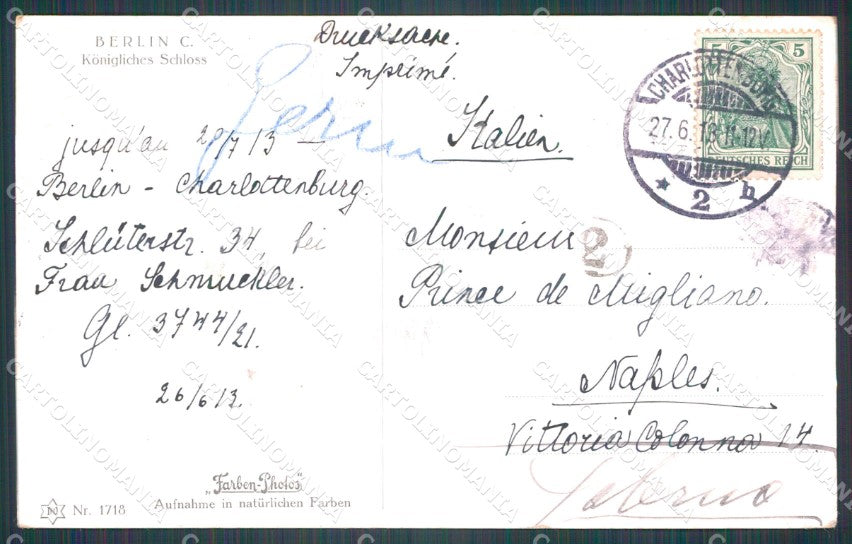 BERLIN C.
Königliches Schloss
Drucksache.
Imprimé.
Italien.
jusqu'au 20/7 13 –
Berlin – Charlottenburg.
Schlüterstr. 34, bei
Frau Schmuckler.
Gl. 3744/21.
26/6 13.
"Farben-Photos"
Aufnahme in natürlichen Farben
N Nr. 1718
5 5
DEUTSCHES REICH
CHARLOTTENBURG
27.6.13.11-12V.
* 2 h
2
Monsieur
Prince de Migliano.
Naples.
Vittoria Colonna 14.
Salerno
CARTOLINOMANIA